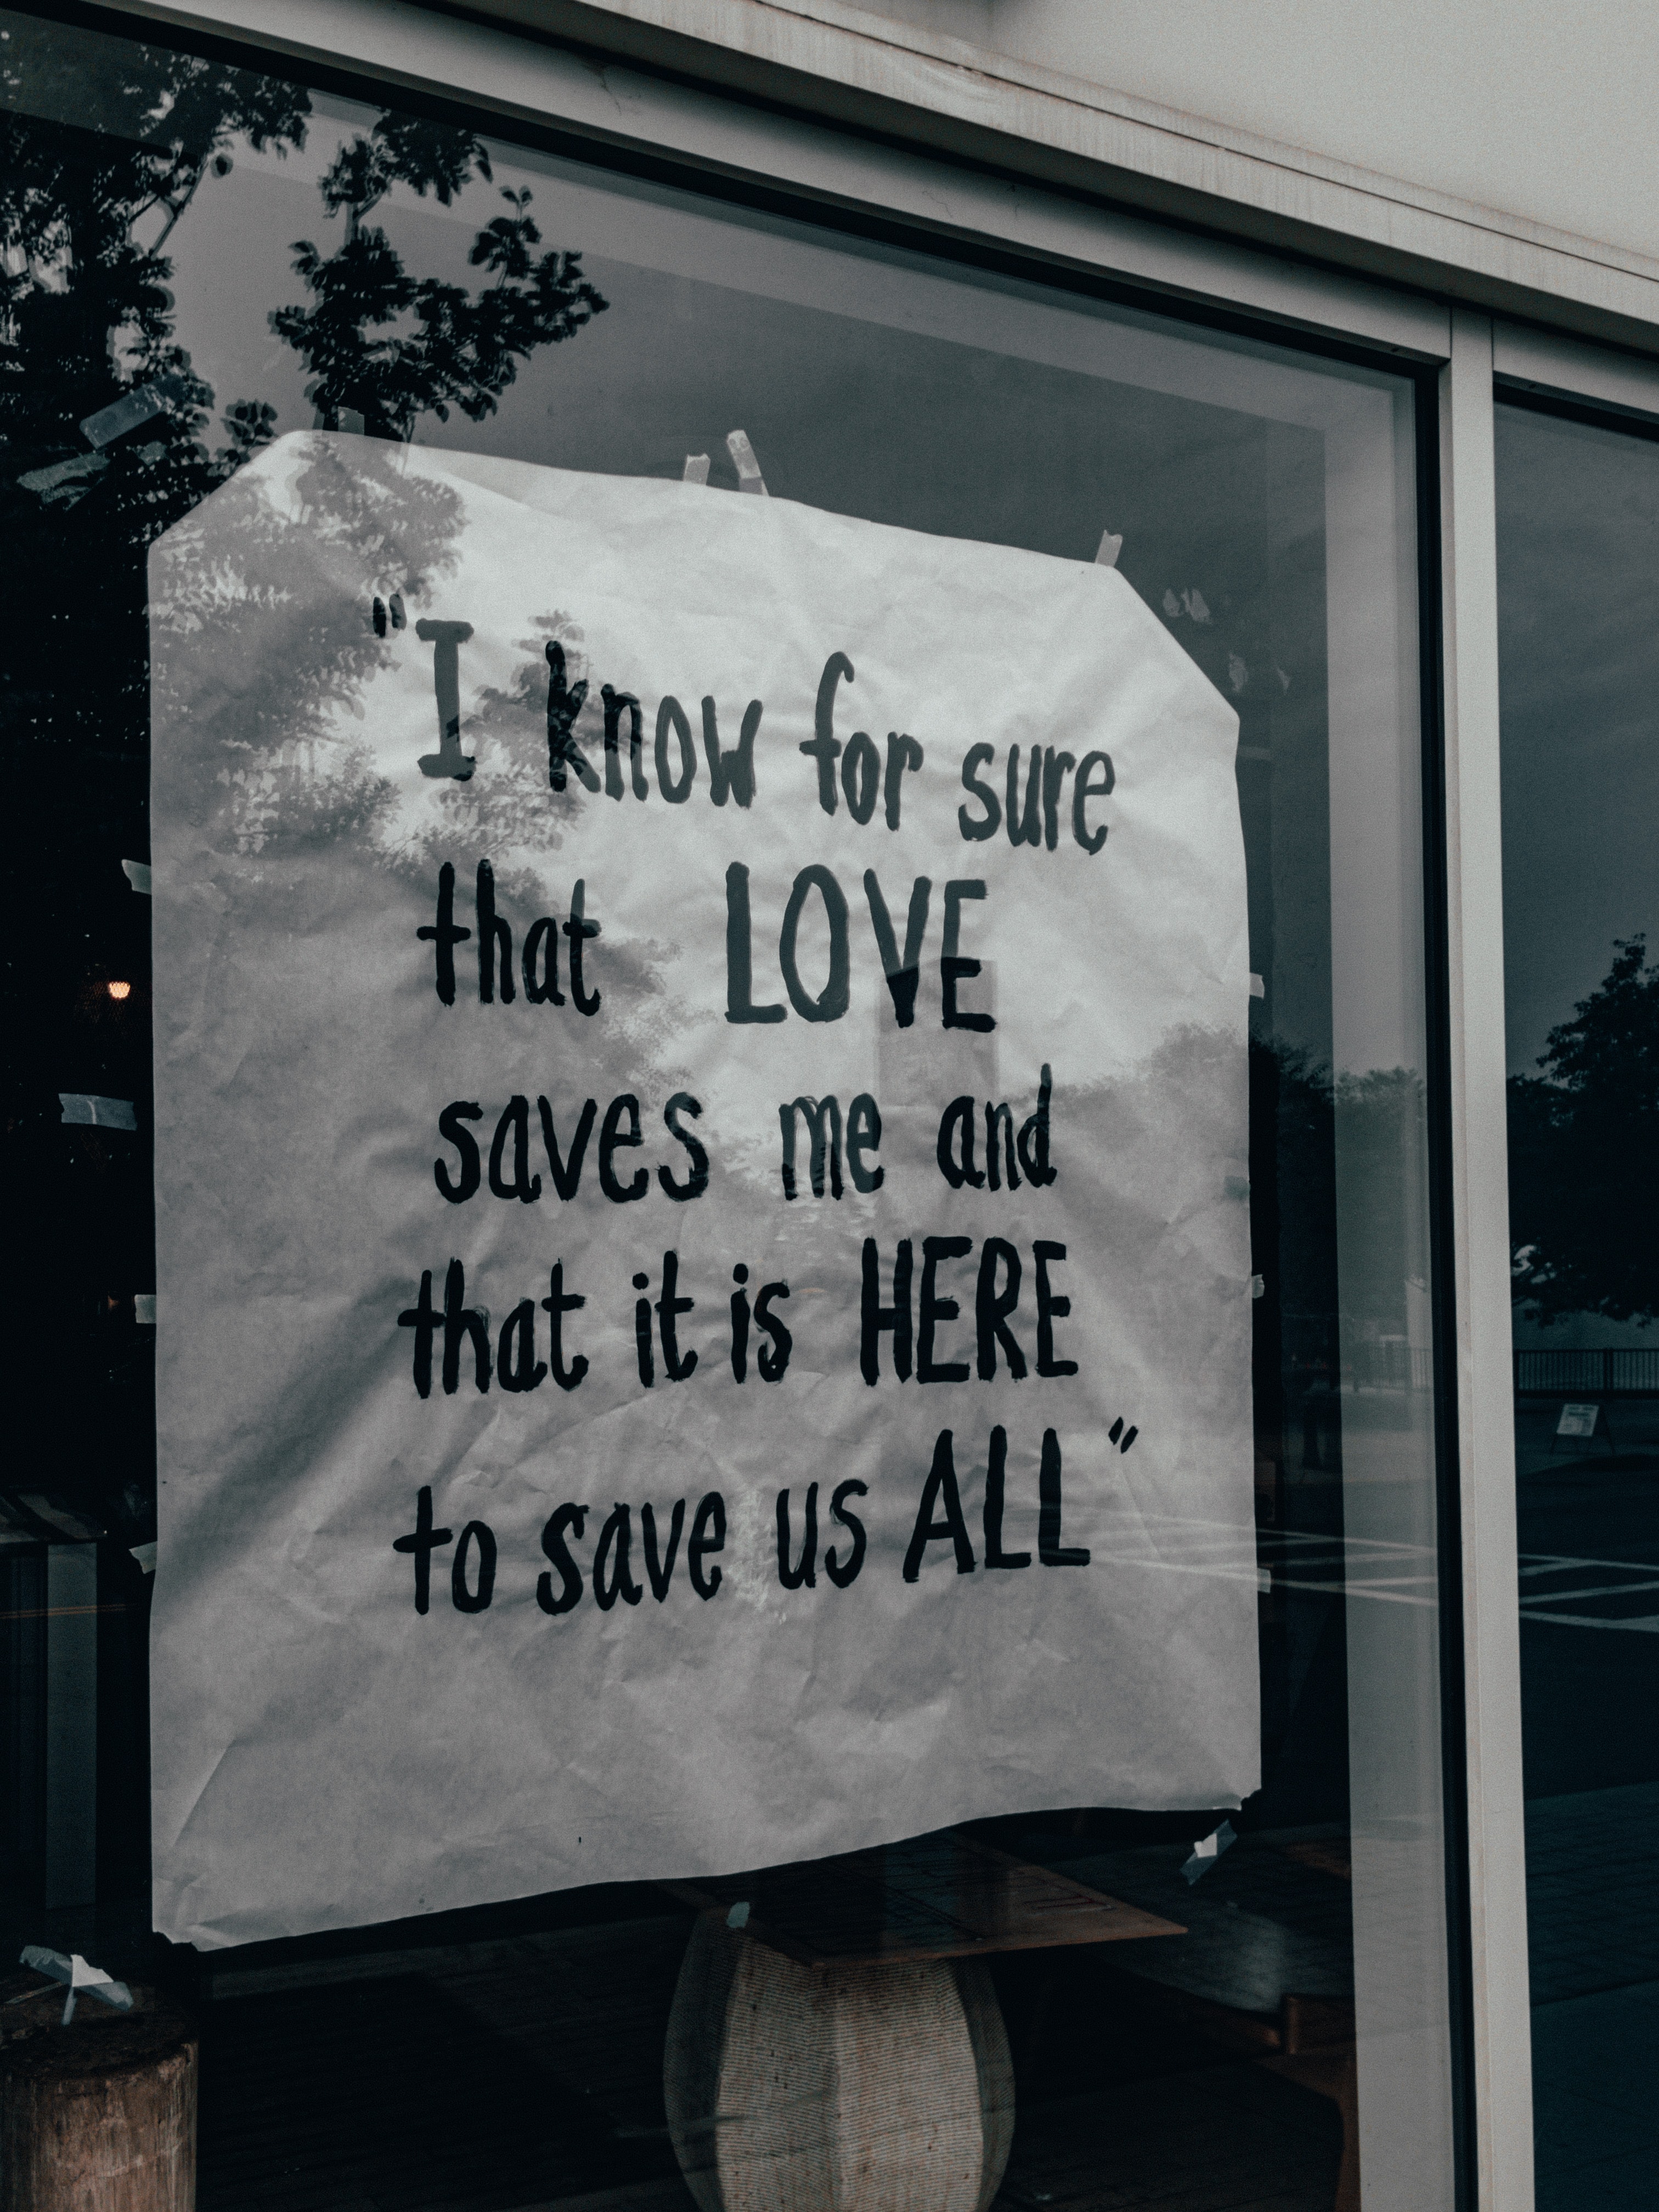 "I know for sure
that LOVE
saves me and
that it is HERE
to save us ALL"